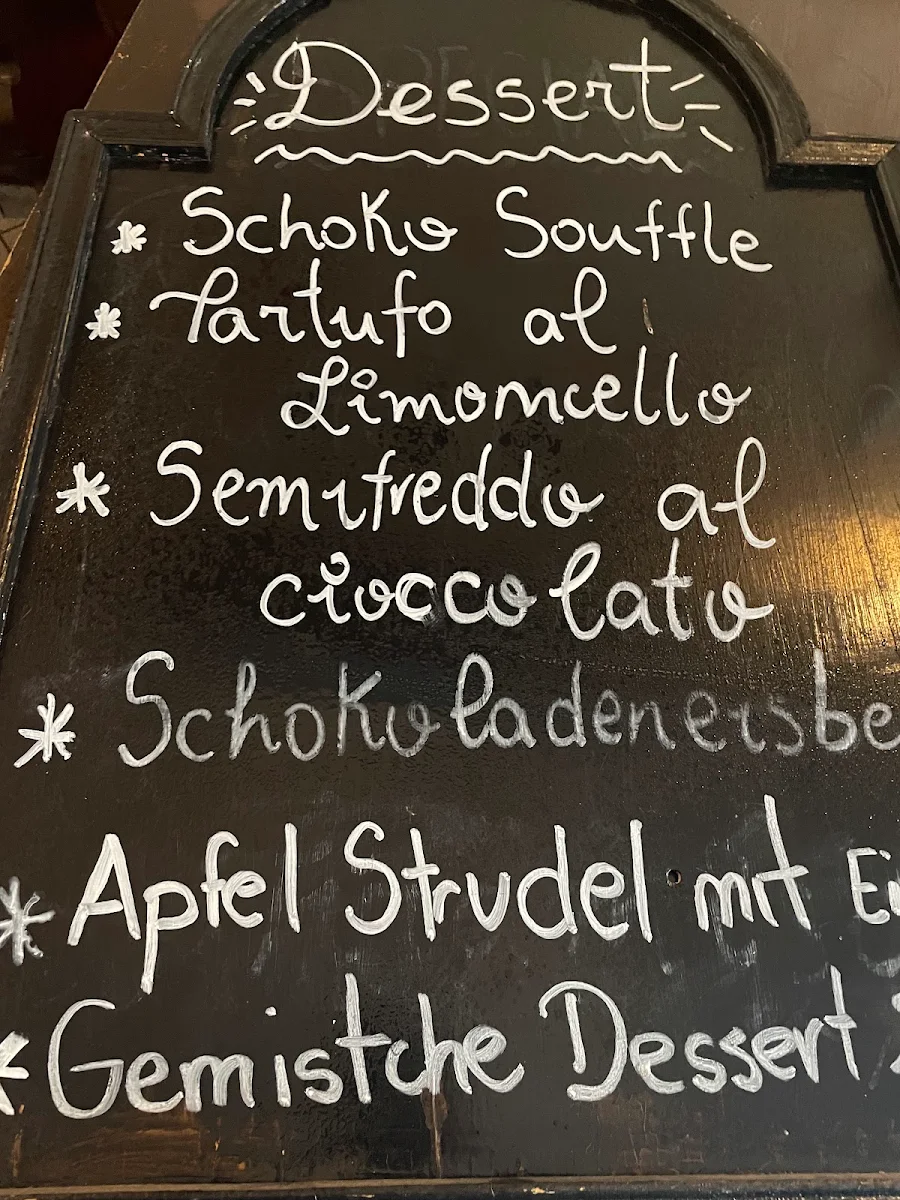 Dessert
* Schoko Souffle
* Tartufo al
Limoncello
* Semifreddo al
cioccolato
* Schokoladeneisbe
* Apfel Strudel mit Ei
* Gemistche Dessert